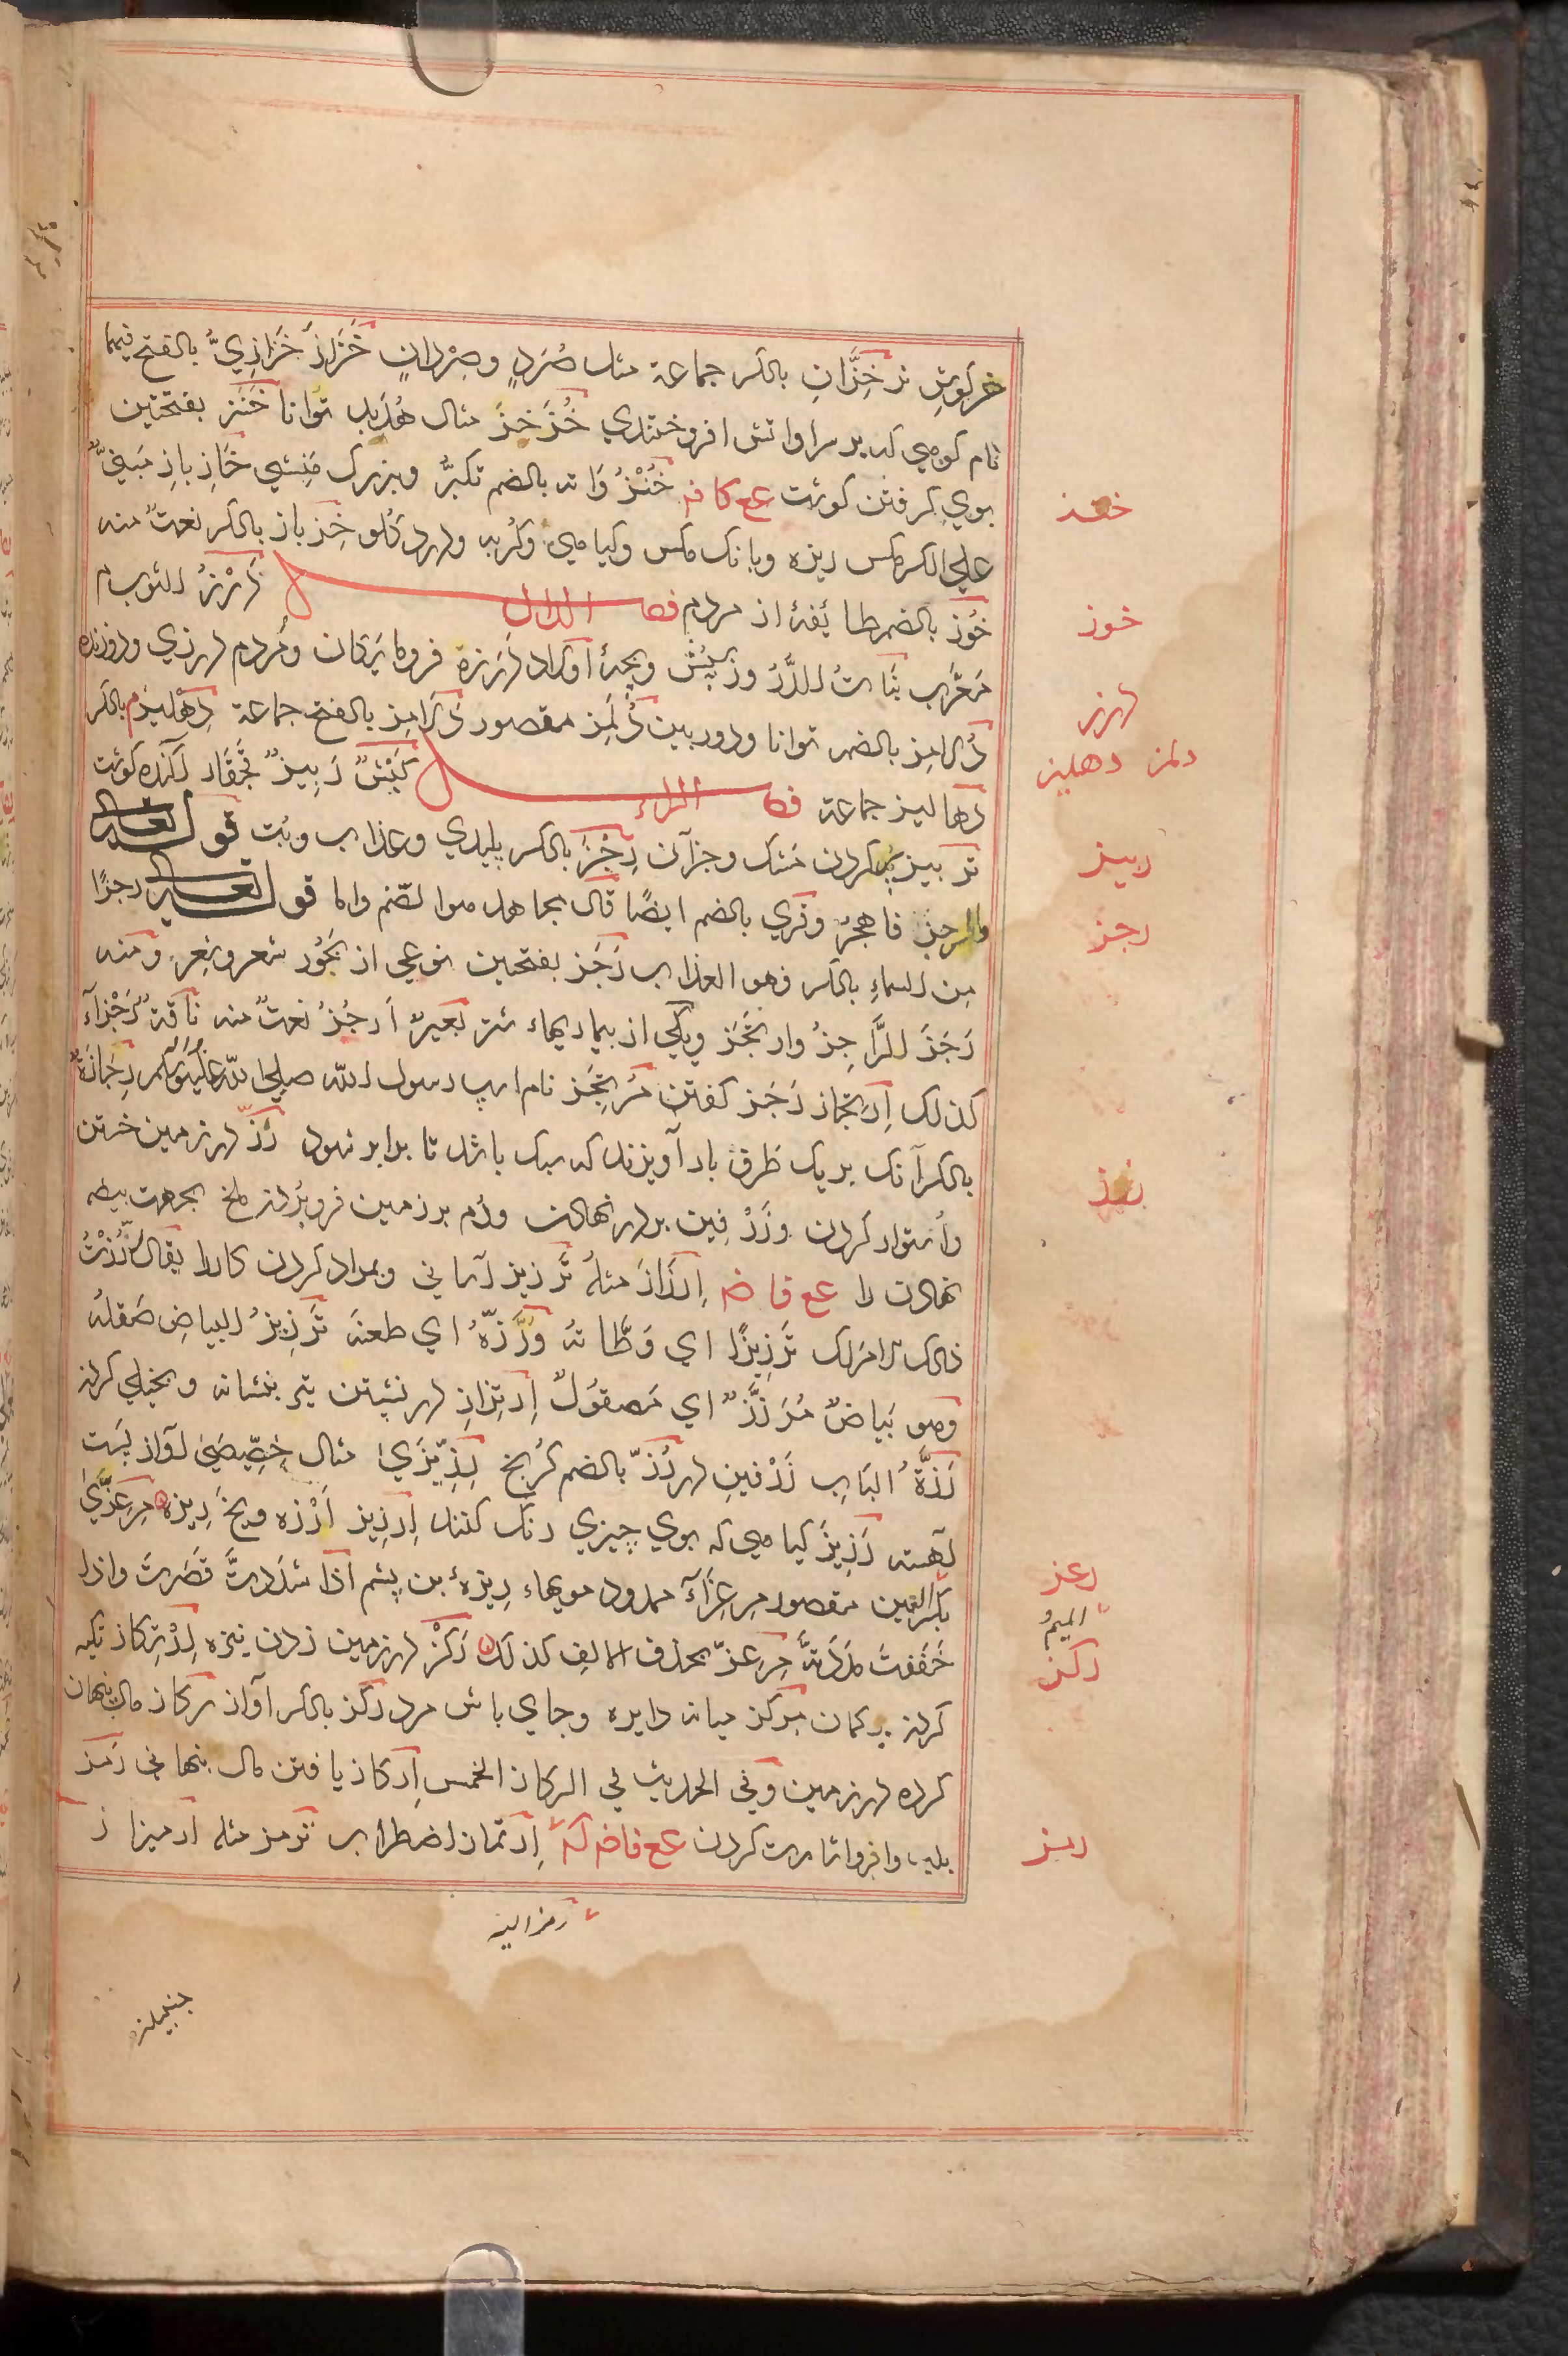 خرگوش نر خِزَّانِ بالكسر جماعة مثل صُرَدٍ وصِرْدانٍ خَزَازَ خَزَازِيُّ بالفتح فيهما
نام كوهي كه بر سر او آتش افروختندي خُزَخِزَ مثال هُدَبِد توانا خَنَز بفتحتين
بوي گرفتن گوشت عع كا فه خُنْزُوَانه بالضم تكبّر وبزرگ مَنِشي خَازِ بازِ مَبنيٌّ
علي الكسر مگس ريزه وبانگ مگس وگياهي وگربه ودرد گلو خِزباز بالكسر نعتٌ منه
خُوز بالضم طايفهٔ از مردم فصل الدال دَرْزُ الثوب م
مُعَرَّب بَنَاتُ الدَّرْز وزپش وبچهٔ اولاد دَرَزة فرومايگان ومردم درزي ودوزنده
دُلامِز بالضم توانا ودوربين دُلَمِز مقصور دَلامِز بالفتح جماعة دِهْليز م بالكسر
دهاليز جماعة فصل الراء كَبْشٌ رَبِيزٌ قچقار آگنده گوشت
تربيز پر كردن مشك وجزآن رِجْز بالكسر پليدي وعذاب وبُت قوله تعالى
والرجز فاهجر وفري بالضم ايضًا قال مجاهد هو الصنم واما قوله تعالى رجزًا
من السماءِ بالكسر فهو العذاب رَجَز بفتحتين نوعي از بُحُور شعر وشِعر ومنه
رَجَزَ الرَّاجِزُ وارتَجَزَ ويكي از بيماريهاء شتر بعيرٌ اَرجَزُ نعتٌ منه ناقةٌ رَجْزَآءُ
كذلك اِرتجاز رَجَز گفتن مُرتجِز نام اسپ رسول الله صلى الله عليه وآله وسلم رِجَازَةٌ
بالكسر آنك بر يك طرف بار آويزند كه سبك باشد تا برابر شود رَزّ در زمين خستن
واستوار كردن وزَرْفِين بر در نهادن ودُم بر زمين فروبردن ملخ بجهت بيضه
نهادن را عع فا ضه اِرزَاز مثلهُ تَرزيز آساني وهموار كردن كار را يقال رَزَّزْتُ
ذلك الامرَ لك تَرْزِيزًا اي وَطَّاتهُ ورَزَّهُ اي طعنه تَرزيزُ البياضِ صَقلهُ
وهو بَيَاضٌ مُرَزَّزٌ اي مَصقُولٌ اِرتِزاز در نشستن تير بنشانه وبخيلي كردن
رَزَّةُ البَابِ زَرْفينِ در رُزّ بالضم كُرنج رِزِّيزَيٰ مثال خِصِّيصَيٰ آواز پست
آهسته رَزِيز گياهي كه بوي چيزي رنگ كنند اِرزِيز لرزه ويخ ريزه مِرعِزَّيٰ
بكسر العين مقصور مِرعِزَآءَ ممدود مويهاء ريزهٔ بن پشم اذا شَدَّدتَ قَصَرتَ واذا
خَفَفتَ مَدَدتَّ مِرعِزّ بحذف الالف كذلك رَكْز در زمين زدن نيزه اِرتِكاز تكيه
كردن بر كمان مركز ميانه دايره وجاي باش مرد رِكز بالكسر آواز رِكاز مال پنهان
كرده در زمين وفي الحديث في الركاز الخمس اِركاز يافتن مال پنهاني رَمز
بلب وابرو اشارت كردن عع فا ضه كه اِرتماز اضطراب ترمز مثله ارميزاز
رمز اليه
خنز
خوز
درز
دلمز دهليز
ربيز
رجز
رزز
رعز
الميمُ
ركز
رمز